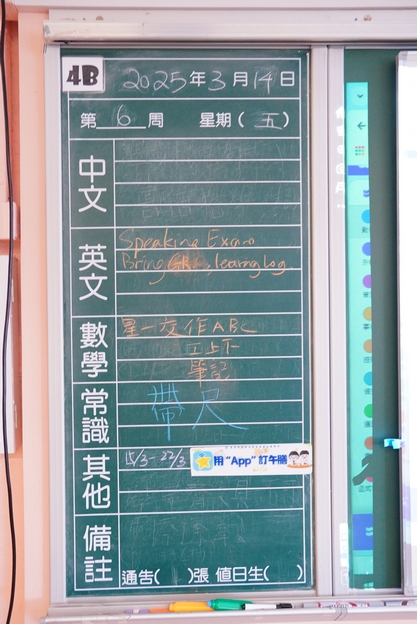 4B 2025年3月14日
第6周 星期(五)
中文
英文
Speaking Exam
Bring GR, learning log
數學
星一交作ABC
工上下
筆記
常識
帶尺
其他
15/3-22/3 用"App"訂午膳
備註
通告( )張 值日生( )